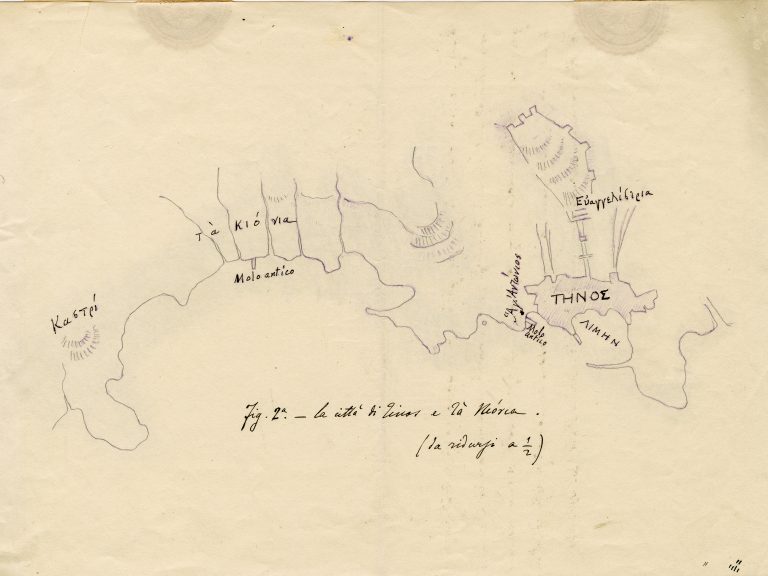 Εὐαγγελίστρια
Τὰ Κιόνια
Molo antico
Ἅγ. Ἀντώνιος
ΤΗΝΟΣ
Καστρί
ΛΙΜΗΝ
Molo
antico
Fig. 2ª. — La città di Tinos e Tà Kiónia.
(da ridursi a 1/2)